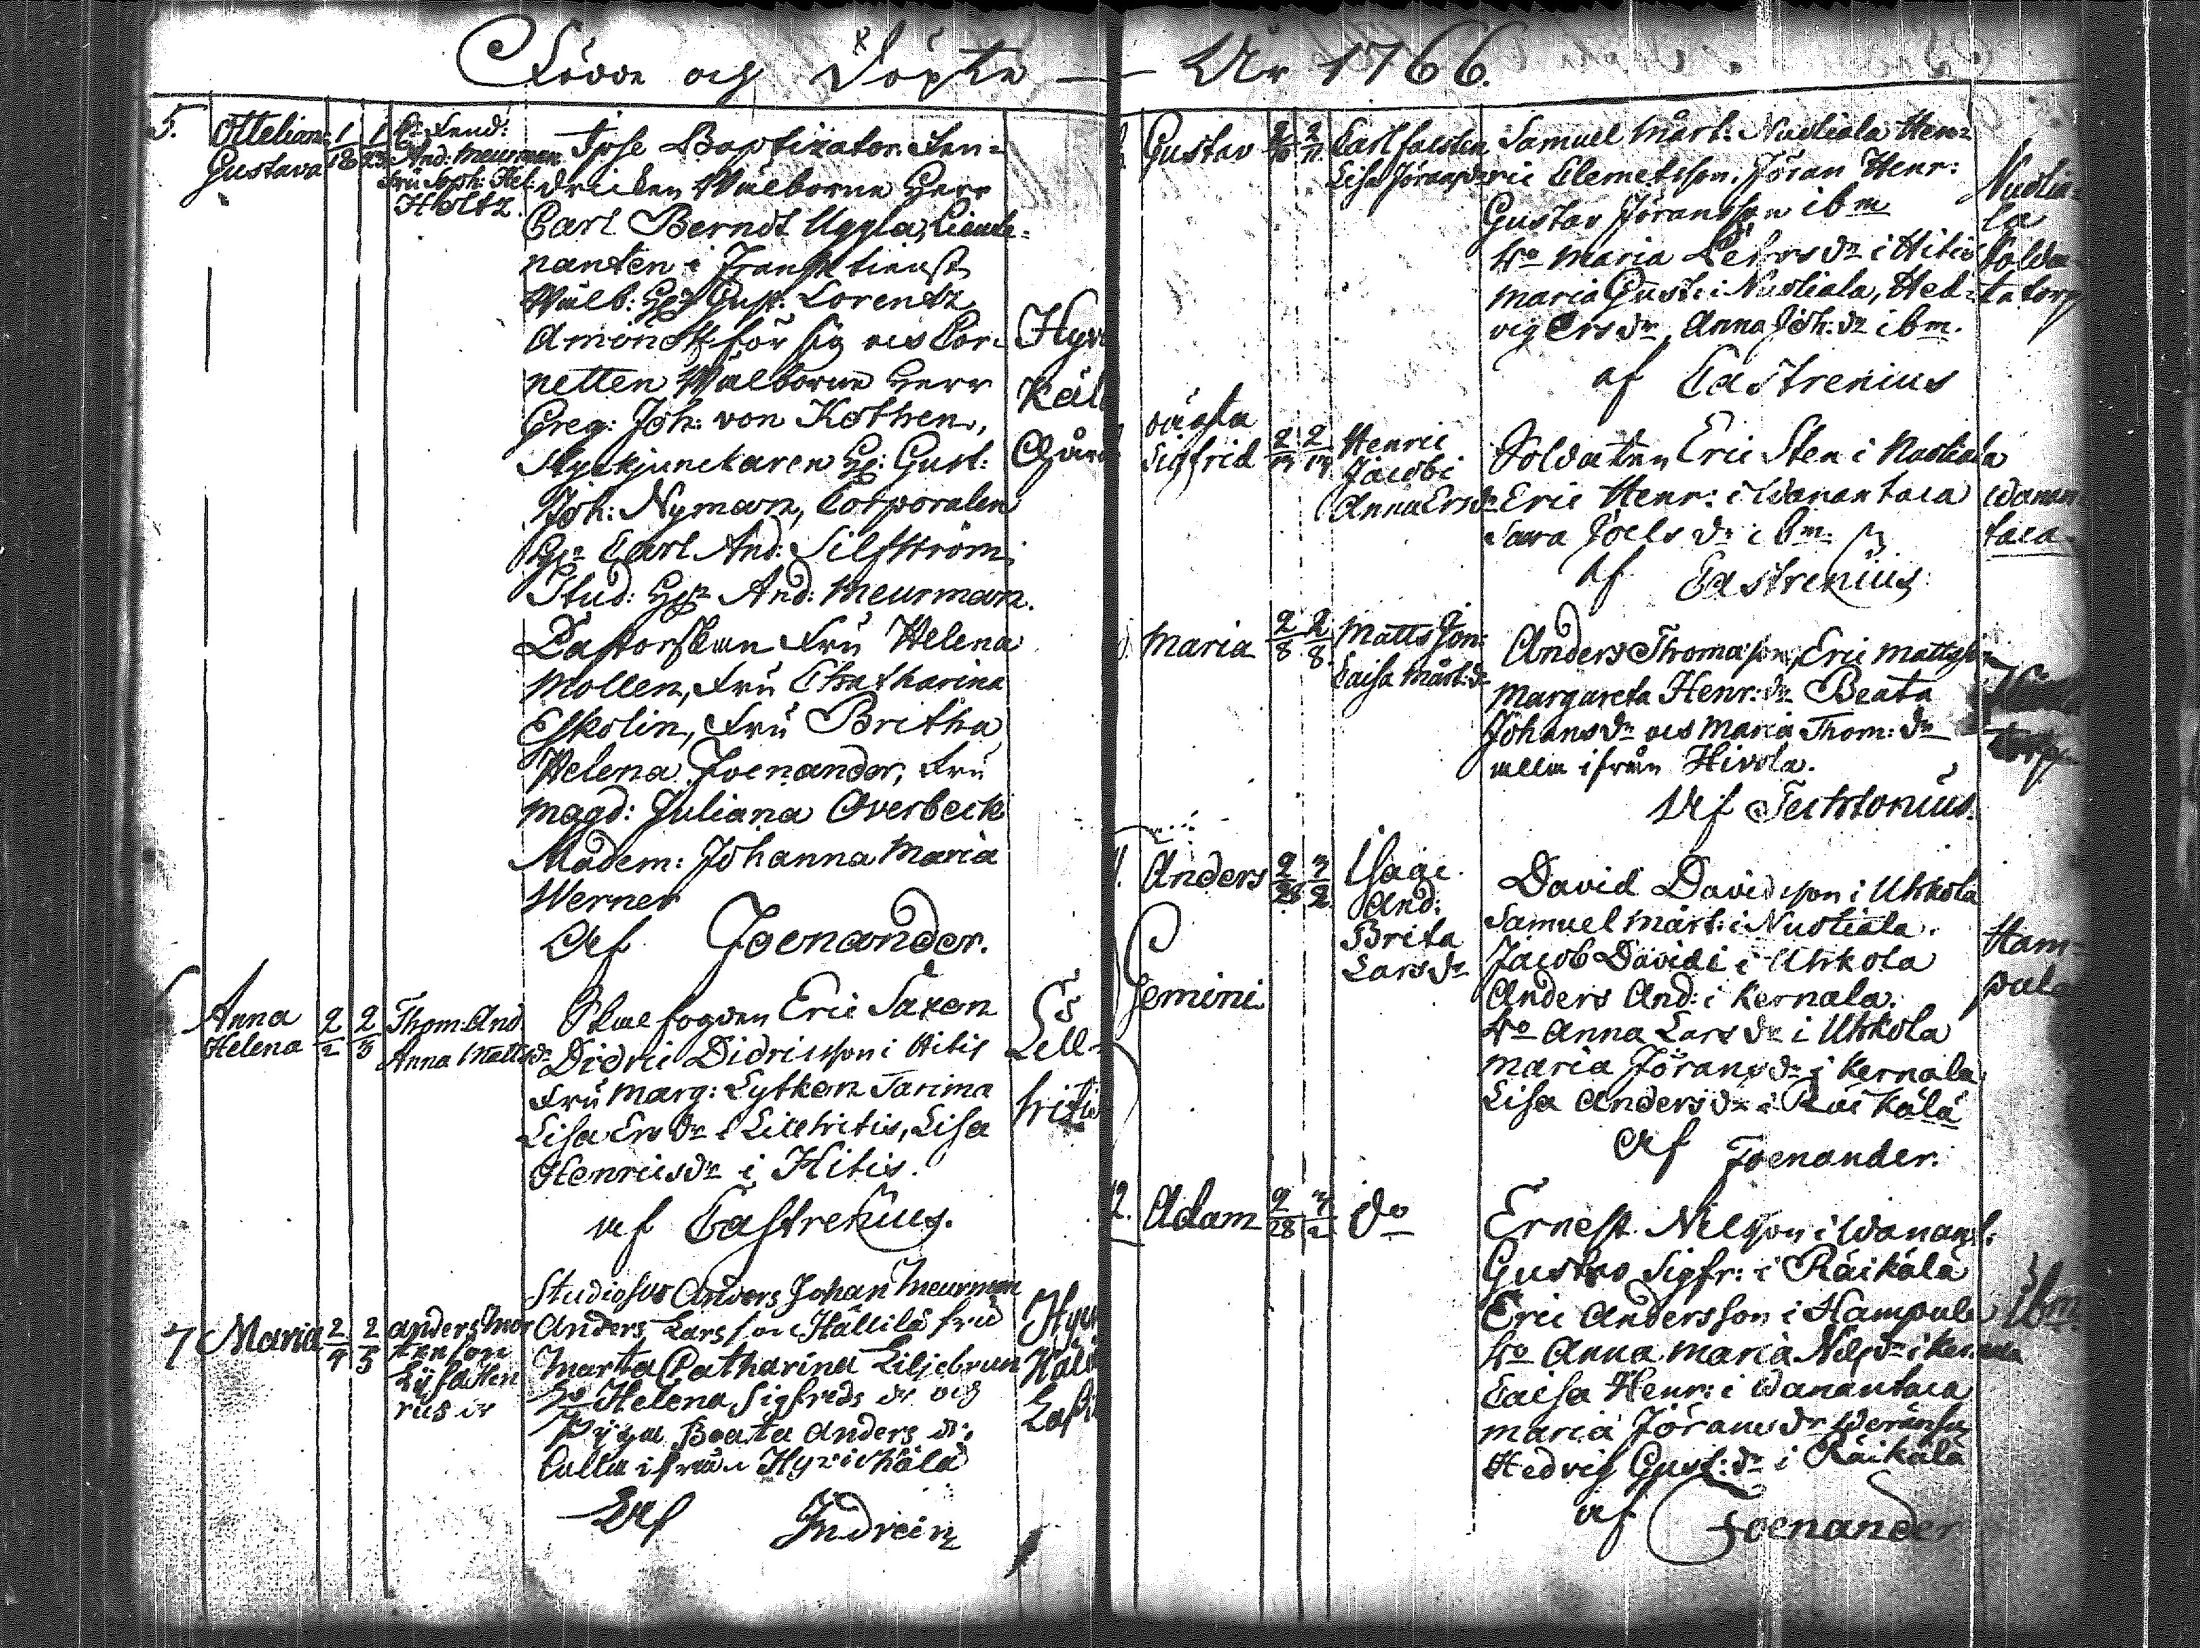 Födde och Döpte — År 1766.
5.
Ottelian:
Gustava
1/18
1/23
And: Meurman
Fru Soph: Hel:
Holtz.
Ipse Baptizator. Fen=
dricken Wälborne Herr
Carl Berndt Uggla, Lieute=
nanten i Fransk tienst
Wälb: Gust: Lorentz
Amonoff för sig och Cor=
netten Wälborne Herr
Greg: Joh: von Kothen,
Styckjunckaren Hr: Gust:
Joh: Nyman, Corporalen
Hr Carl And: Silfström
Stud: Hr And: Meurman.
Pastorskan Fru Helena
Mollen, Fru Chatharina
Eskolin, Fru Britha
Helena Foenander, Fru
Magd: Juliana Overbeck
Madem: Johanna Maria
Werner
Af Foenander.
Hyvi
Käl
Gård
Anna
Helena
2/2
2/3
Thom: And
Anna Mattsdr
Eric Saxen
Didric Didricsson i Hitis
Fru Marg: Lytken Tarima
Lisa Ersdr i Lillhitis, Lisa
Henricsdr i Hitis.
af Castrenius.
Lell-
hitis
7
Maria
2/4
2/5
Anders Mår
tensson
Studiosus Anders Johan Meurman
Anders Larsson i Hällilä fru
Marta Catharina Liljebrun
Ho Helena Sigfreds dr och
Pigan Beata Anders dr
alla ifrån Hyvickälä
Af Indrein
Hyvi
Käl
Gustav
2/10
2/11
Carl
Lisa Jöransdr
Samuel Mårt: Nuoliala Hen=
ric Clemetsson. Jöran Henr:
Gustav Jöransson ibm
Ho Maria Petersdr i Hitis
Maria Gust: i Nuoliala, Hed=
vig Ersdr, Anna Joh: dr ibm.
af Castrenius
Nuolia-
la
Solda-
tetorp
Sigfrid
2/13
2/13
Henric
Jacobi
Anna Ersdr
Soldaten Eric Sten i Nuoliala
Eric Henr: i Wanantaca
Sara Joels dr ibm
af Castrenius
Wanan
taca
Maria
2/8
2/8
Matts Jon:
Caisa Mårt: dr
Anders Thomasson, Eric Mattsson
Margareta Henr: dr Beata
Johansdr och Maria Thom: dr
alla ifrån Hivola.
Af Techtonius.
torp
Anders
2/28
3/2
Isaac
And:
Brita
Larsdr
Gemini
David Davidsson i Uhkola
Samuel Mårt: i Nuoliala.
Jacob Davidi i Uhkola
Anders And: i Kernala.
Ho Anna Larsdr i Uhkola
Maria Jöransdr i Kernala
Lisa Andersdr i Räikälä
Af Foenander.
Ham-
pula
12.
Adam
2/28
3/2
do
Ernest Nelsson i Wanant:
Gustav Sigfr: i Räikälä
Eric Andersson i Hampula
Ho Anna Maria Nilsdr i Kernala
Caisa Henr: i Wanantaca
Maria Jöransdr
Hedvig Gust: dr i Räikälä
af Foenander
ibm